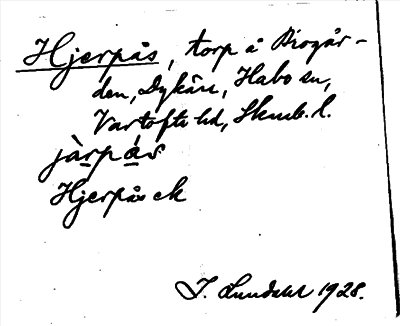 Hjerpås, torp å Biogår-
den, Dykärr, Habo sn,
Vartofta hd, Skarab. l.
järpås
Hjerpås ek
J. Lundahl 1928.